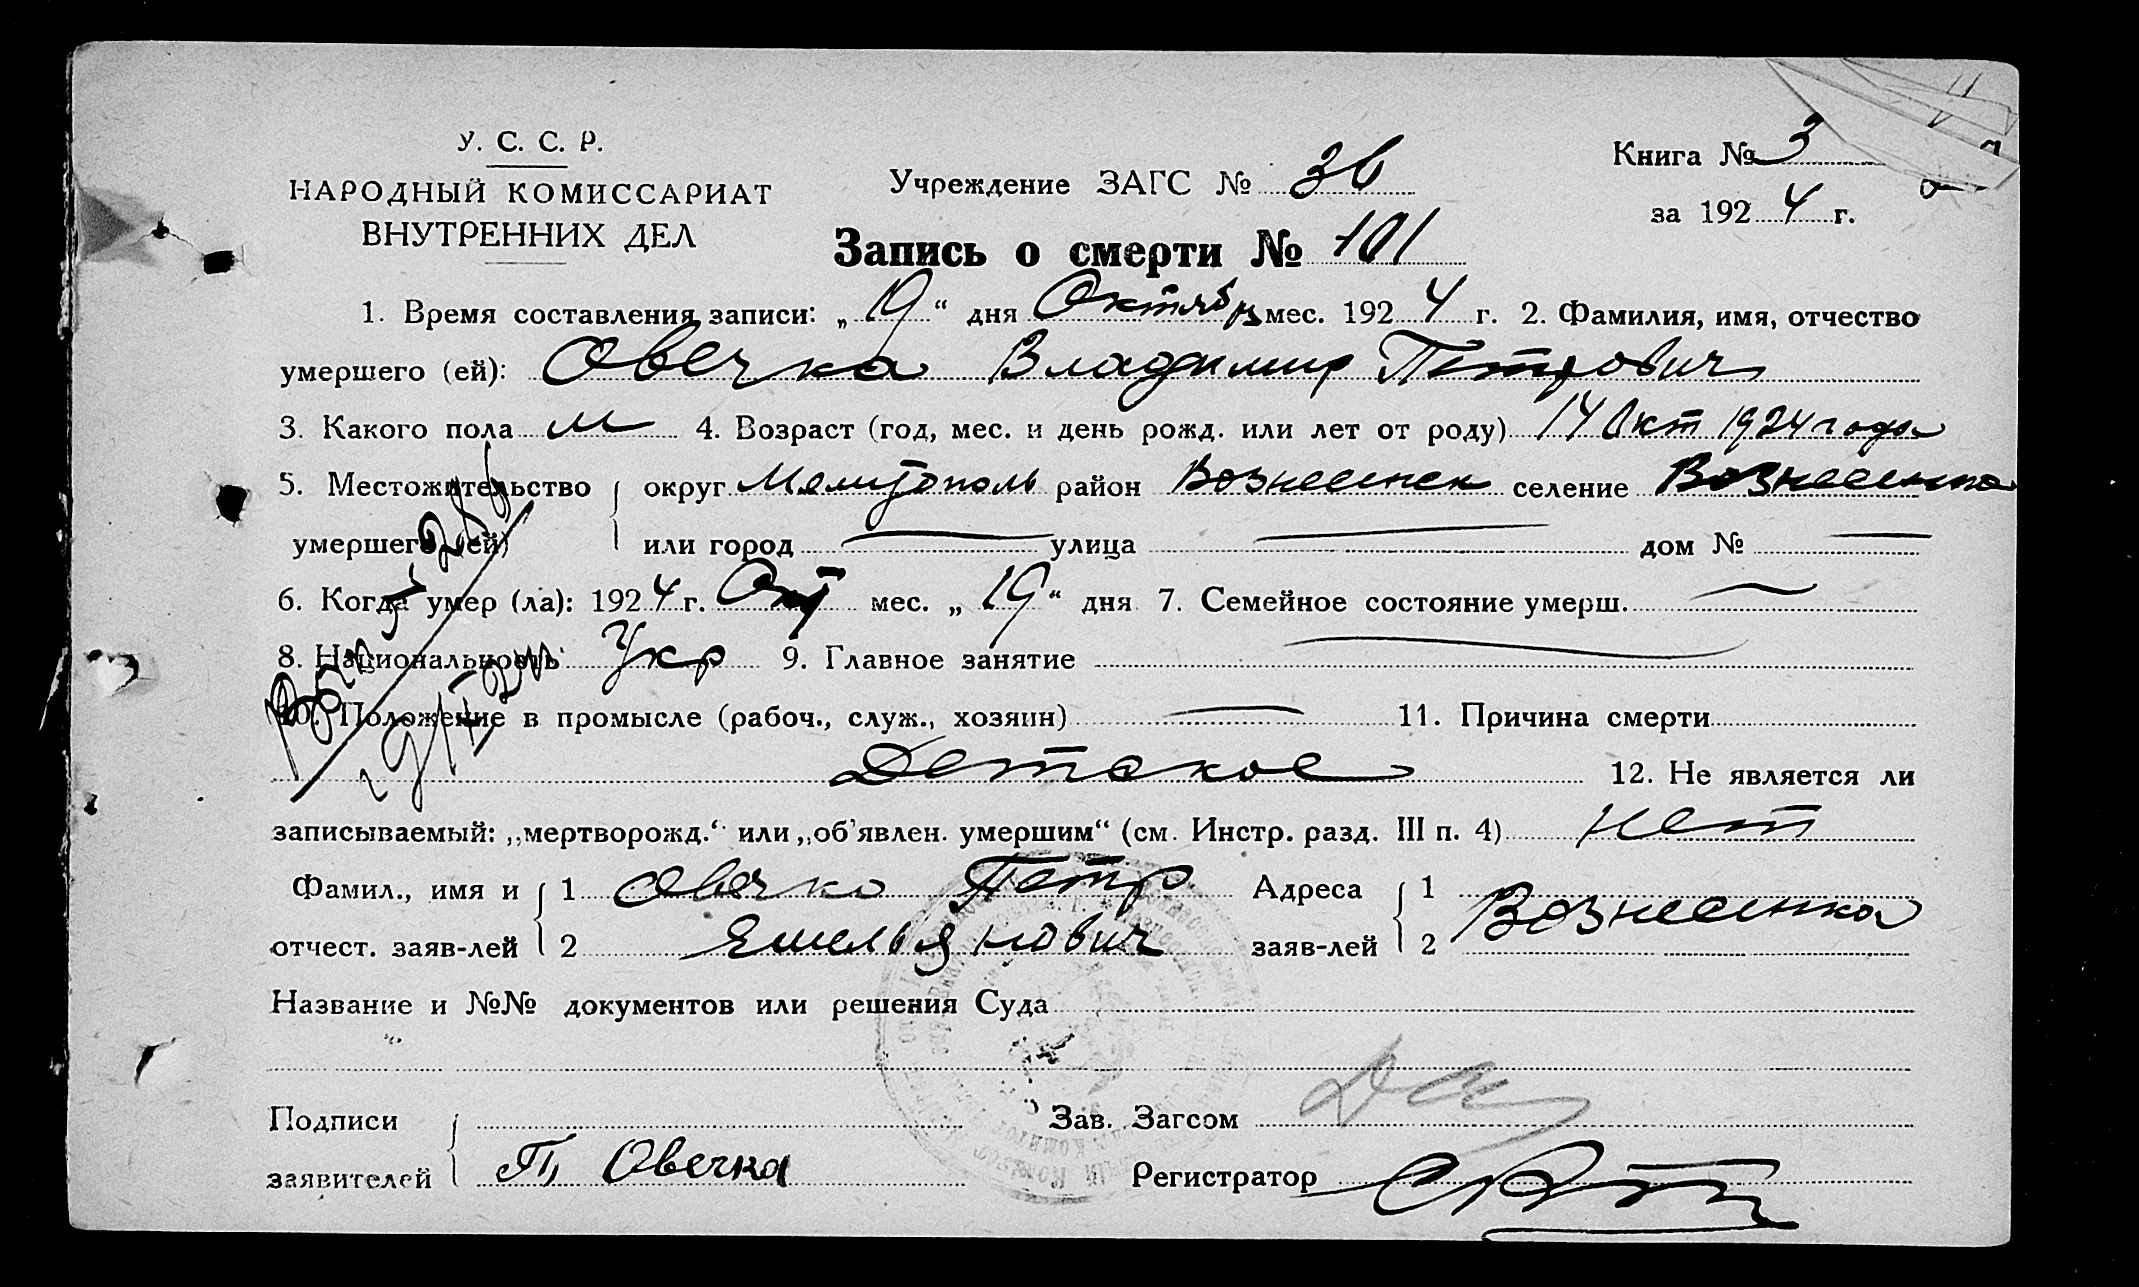 У. С. С. Р.
НАРОДНЫЙ КОМИССАРИАТ
ВНУТРЕННИХ ДЕЛ
Учреждение ЗАГС № 36
Книга № 3
за 1924 г.
Запись о смерти № 101
1. Время составления записи: „19“ дня Октябр мес. 1924 г. 2. Фамилия, имя, отчество
умершего (ей): Овечка Владимир Петрович
3. Какого пола м 4. Возраст (год, мес. и день рожд. или лет от роду) 14 Окт 1924 года
5. Местожительство округ Мелитополь район Вознесенск селение Вознесенка
умершего (ей) или город — улица — дом № —
6. Когда умер (ла): 1924 г. Окт мес. „19“ дня 7. Семейное состояние умерш. —
8. Национальность Укр 9. Главное занятие —
10. Положение в промысле (рабоч., служ., хозяин) — 11. Причина смерти
Детское 12. Не является ли
записываемый: „мертворожд.“ или „об'явлен. умершим“ (см. Инстр. разд. III п. 4) нет
Фамил., имя и 1 Овечко Петр Адреса 1 Вознесенка
отчест. заяв-лей 2 Емельянович заяв-лей 2
Название и №№ документов или решения Суда
Подписи Зав. Загсом
заявителей П Овечка Регистратор